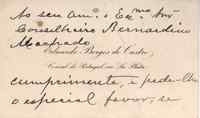 Ao seu Am.º e Ex.mo Snr
Conselheiro Bernardino
Machado
Eduardo Borges de Castro,
Consul de Portugal em La Plata
cumprimenta, e pede-lhe
o especial favor, se